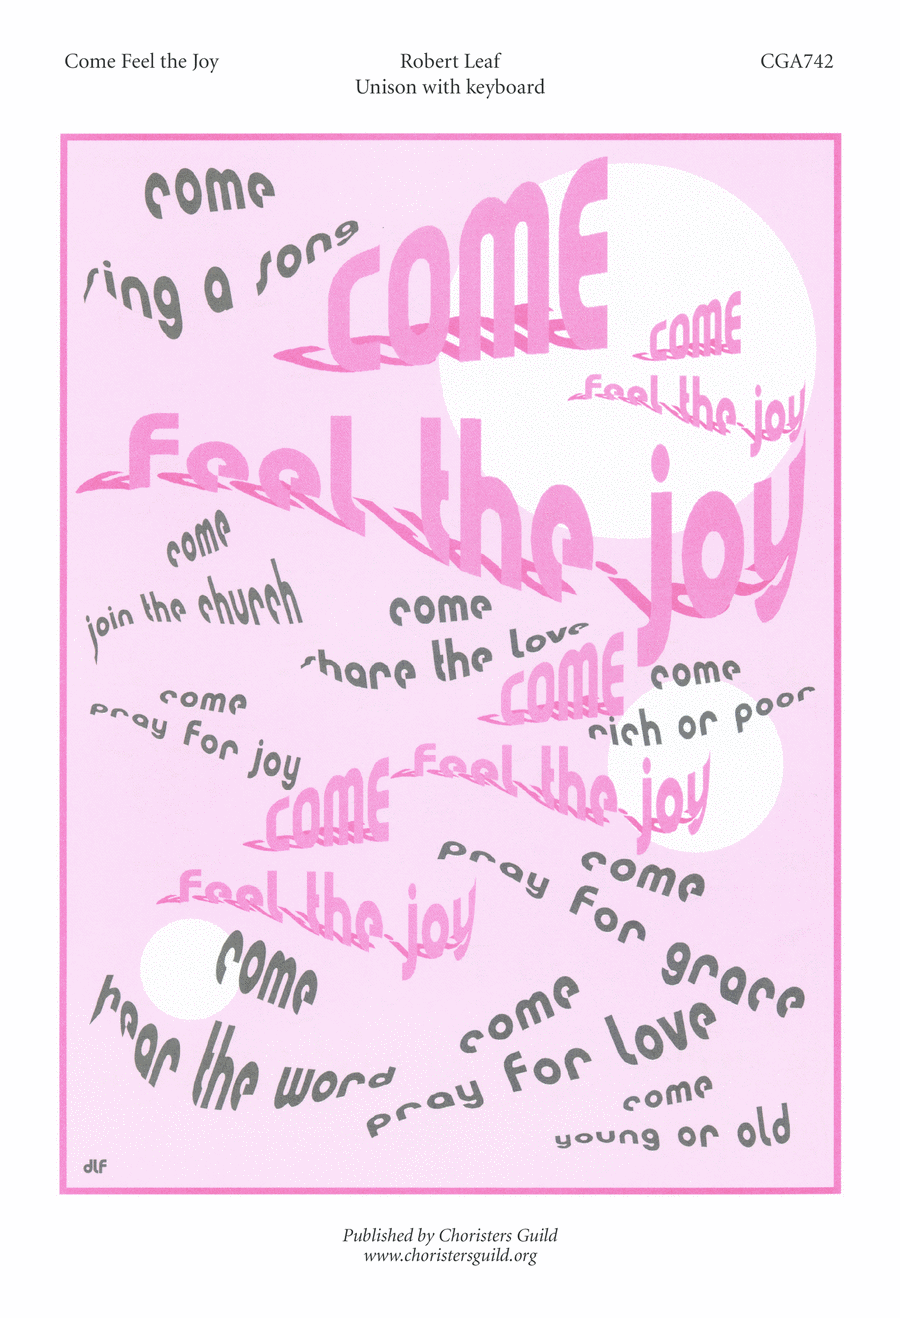 Come Feel the Joy
Robert Leaf
CGA742
Unison with keyboard
come
sing a song
come
come
feel the joy
feel the joy
come
join the church
come
share the love
come
come
rich or poor
come
pray for joy
feel the joy
come
feel the joy
come
pray for
grace
come
hear the word
come
pray for love
come
young or old
dlf
Published by Choristers Guild
www.choristersguild.org